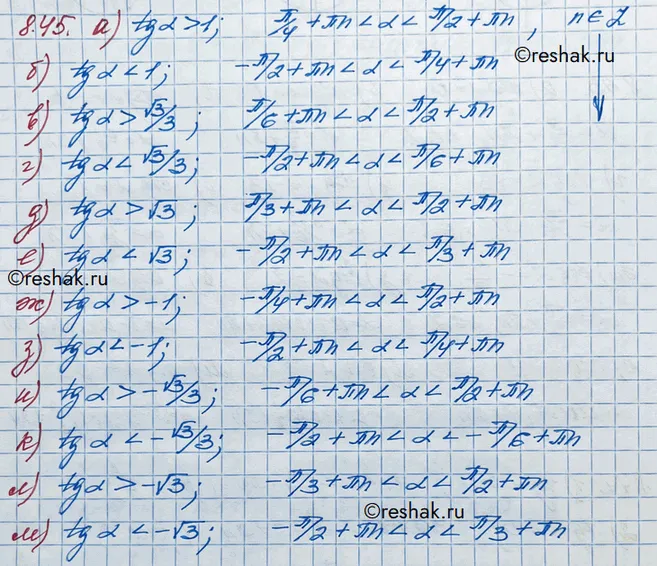 8.45. а) tg α > 1; π/4 + πn < α < π/2 + πn, n ∈ Z
©reshak.ru
б) tg α < 1; -π/2 + πn < α < π/4 + πn
в) tg α > √3/3; π/6 + πn < α < π/2 + πn
г) tg α < √3/3; -π/2 + πn < α < π/6 + πn
д) tg α > √3; π/3 + πn < α < π/2 + πn
е) tg α < √3; -π/2 + πn < α < π/3 + πn
©reshak.ru
ж) tg α > -1; -π/4 + πn < α < π/2 + πn
з) tg α < -1; -π/2 + πn < α < π/4 + πn
и) tg α > -√3/3; -π/6 + πn < α < π/2 + πn
к) tg α < -√3/3; -π/2 + πn < α < -π/6 + πn
л) tg α > -√3; -π/3 + πn < α < π/2 + πn
©reshak.ru
м) tg α < -√3; -π/2 + πn < α < π/3 + πn